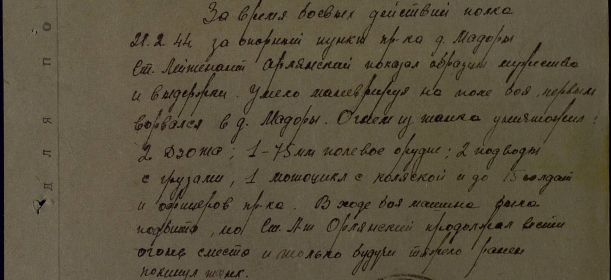 За время боевых действий полка
21.2.44 за опорный пункт пр-ка д. Мадоры
Ст. Лейтенант Орлянский показал образцы мужества
и выдержки. Умело маневрируя на поле боя, первым
ворвался в д. Мадоры. Огнем из танка уничтожил:
2 Дзота; 1-75 мм полевое орудие; 2 подводы
с грузами, 1 мотоцикл с коляской и до 15 солдат
и офицеров пр-ка. В ходе боя машина была
подбита, но Ст. Л-т Орлянский продолжал вести
огонь с места и только будучи тяжело ранен
покинул танк.
для по